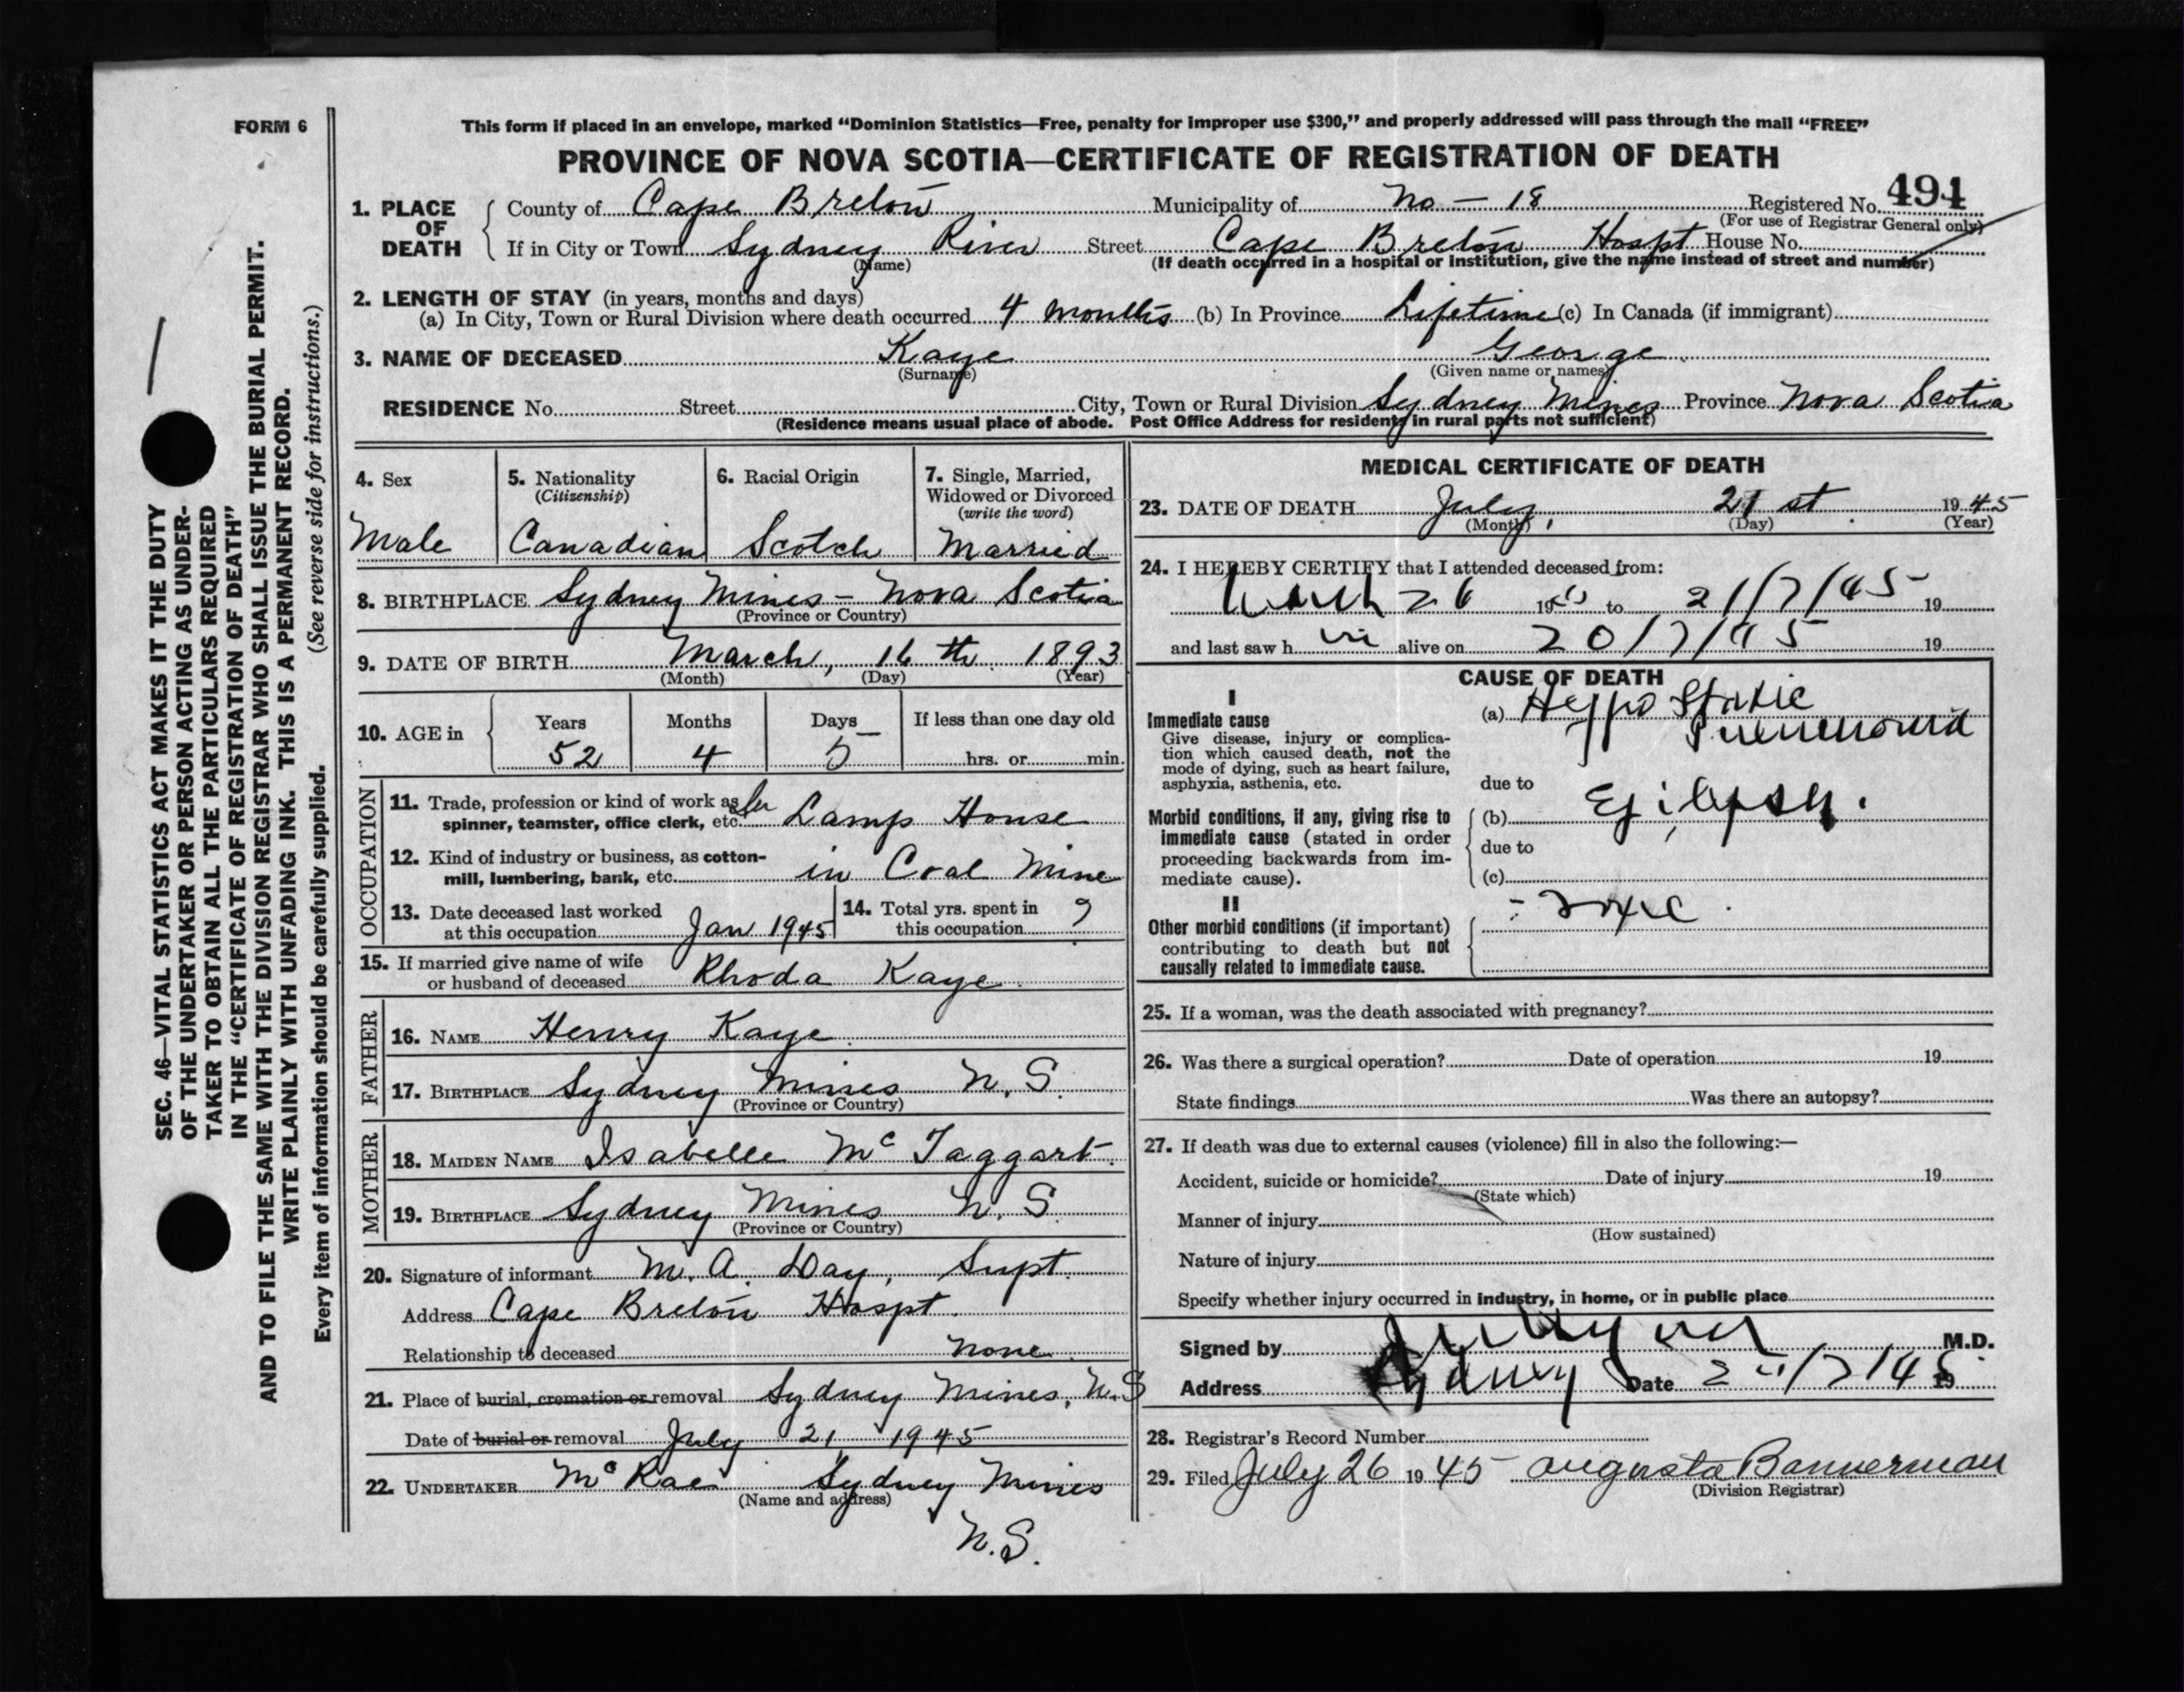 FORM 6
This form if placed in an envelope, marked “Dominion Statistics—Free, penalty for improper use $300,” and properly addressed will pass through the mail “FREE”
PROVINCE OF NOVA SCOTIA—CERTIFICATE OF REGISTRATION OF DEATH
1. PLACE OF DEATH
County of Cape Breton Municipality of No – 18 Registered No. 494
(For use of Registrar General only)
If in City or Town Sydney River Street Cape Breton Hospt House No.
(Name) (If death occurred in a hospital or institution, give the name instead of street and number)
2. LENGTH OF STAY (in years, months and days)
(a) In City, Town or Rural Division where death occurred 4 months (b) In Province Lifetime (c) In Canada (if immigrant)
3. NAME OF DECEASED Kaye George
(Surname) (Given name or names)
RESIDENCE No. Street City, Town or Rural Division Sydney Mines Province Nova Scotia
(Residence means usual place of abode. Post Office Address for residents in rural parts not sufficient)
4. Sex
Male
5. Nationality
(Citizenship)
Canadian
6. Racial Origin
Scotch
7. Single, Married,
Widowed or Divorced
(write the word)
Married
8. BIRTHPLACE Sydney Mines – Nova Scotia
(Province or Country)
9. DATE OF BIRTH March, 16 th. 1893
(Month) (Day) (Year)
10. AGE in
Years Months Days If less than one day old
52 4 5 hrs. or min.
OCCUPATION
11. Trade, profession or kind of work as
spinner, teamster, office clerk, etc. Lamp House
12. Kind of industry or business, as cotton-
mill, lumbering, bank, etc. in Coal Mine
13. Date deceased last worked
at this occupation Jan 1945
14. Total yrs. spent in
this occupation ?
15. If married give name of wife
or husband of deceased Rhoda Kaye
FATHER
16. NAME Henry Kaye
17. BIRTHPLACE Sydney Mines N. S.
(Province or Country)
MOTHER
18. MAIDEN NAME Isabelle McTaggart
19. BIRTHPLACE Sydney Mines N. S.
(Province or Country)
20. Signature of informant M. A. Day, Supt.
Address Cape Breton Hospt.
Relationship to deceased none
21. Place of burial, cremation or removal Sydney Mines, N.S
Date of burial or removal July 21, 1945
22. UNDERTAKER McRae Sydney Mines
(Name and address)
N.S.
MEDICAL CERTIFICATE OF DEATH
23. DATE OF DEATH July, 21 st. 1945
(Month) (Day) (Year)
24. I HEREBY CERTIFY that I attended deceased from:
March 26 1945 to 21/7/45 19
and last saw h im alive on 20/7/45 19
CAUSE OF DEATH
I
Immediate cause
Give disease, injury or complica-
tion which caused death, not the
mode of dying, such as heart failure,
asphyxia, asthenia, etc.
(a) Hypostatic
Pneumonia
due to
Morbid conditions, if any, giving rise to
immediate cause (stated in order
proceeding backwards from im-
mediate cause).
(b) Epilepsy.
due to
(c)
II
Other morbid conditions (if important)
contributing to death but not
causally related to immediate cause.
25. If a woman, was the death associated with pregnancy?
26. Was there a surgical operation? Date of operation 19
State findings Was there an autopsy?
27. If death was due to external causes (violence) fill in also the following:—
Accident, suicide or homicide? Date of injury 19
(State which)
Manner of injury
(How sustained)
Nature of injury
Specify whether injury occurred in industry, in home, or in public place
Signed by M.D.
Address Sydney Date 19
28. Registrar's Record Number
29. Filed July 26 1945 Augusta Bannerman
(Division Registrar)
SEC. 46—VITAL STATISTICS ACT MAKES IT THE DUTY
OF THE UNDERTAKER OR PERSON ACTING AS UNDER-
TAKER TO OBTAIN ALL THE PARTICULARS REQUIRED
IN THE “CERTIFICATE OF REGISTRATION OF DEATH”
AND TO FILE THE SAME WITH THE DIVISION REGISTRAR WHO SHALL ISSUE THE BURIAL PERMIT.
WRITE PLAINLY WITH UNFADING INK. THIS IS A PERMANENT RECORD.
Every item of information should be carefully supplied. (See reverse side for instructions.)